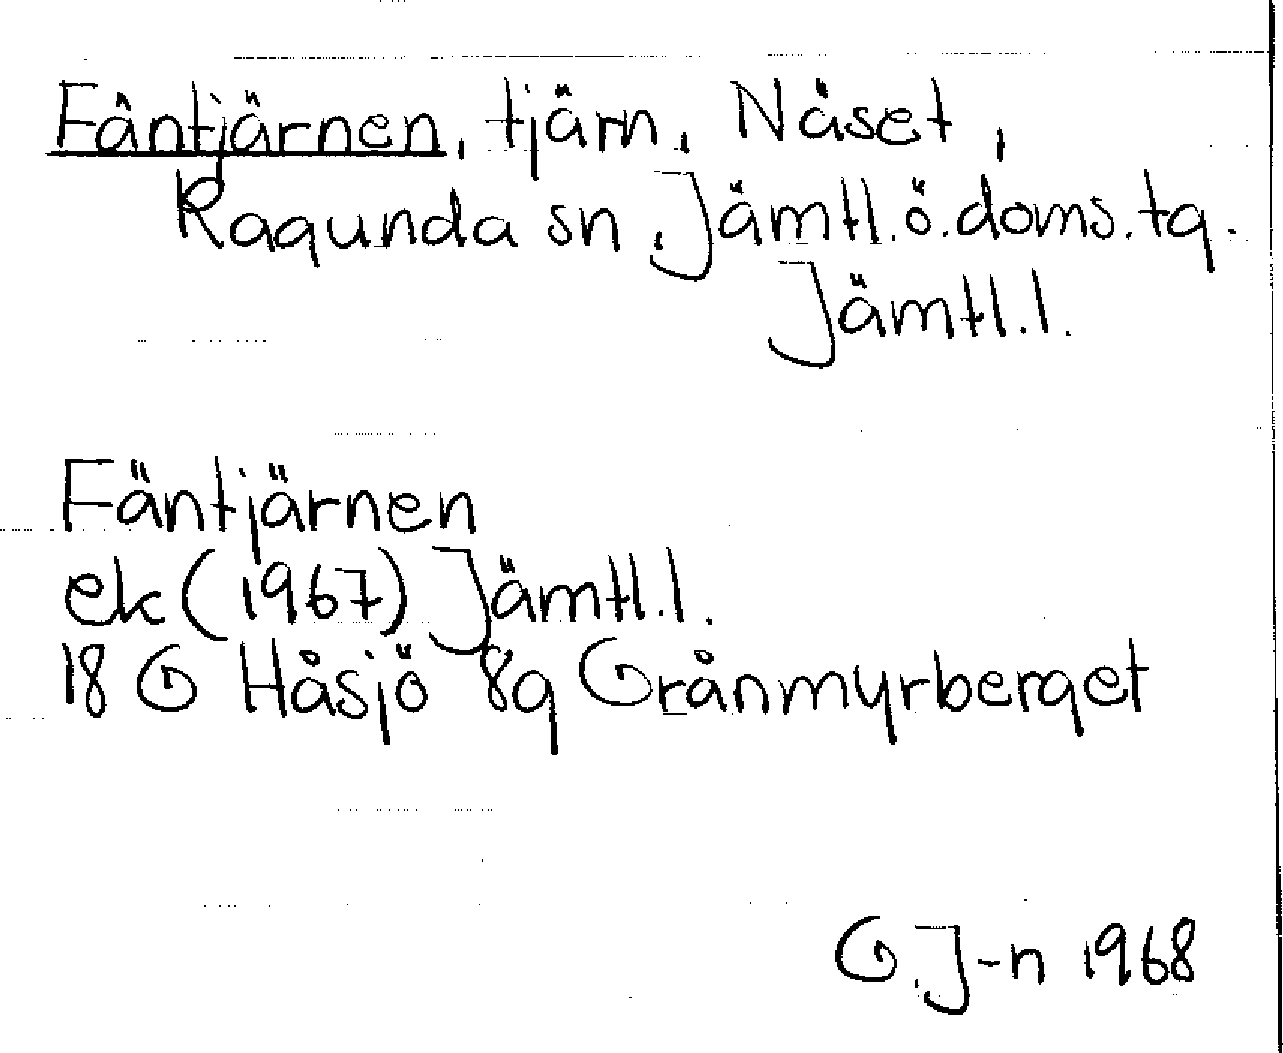 Fäntjärnen, tjärn, Näset,
Ragunda sn, Jämtl.ö.doms.tg.
Jämtl.l.
Fäntjärnen
ek (1967) Jämtl.l.
18 G Håsjö 8g Grånmyrberget
G.J-n 1968